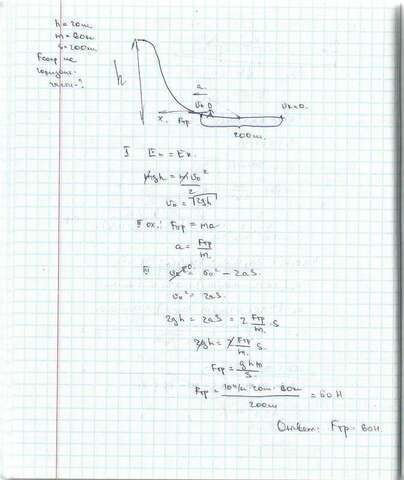 h = 20м
m = 80кг
S = 200м
Fсопр на
горизонт.
части - ?
h
a
V₀
Vк = 0.
x. Fтр
200м.
I Eп = Eк.
mgh = mv₀²/2
v₀ = √2gh
II ox: Fтр = ma
a = Fтр/m.
III v²⁼⁰ = v₀² - 2aS.
v₀² = 2aS.
2gh = 2aS = 2 Fтр/m · S
2gh = 2Fтр/m. S.
Fтр = ghm/S.
Fтр = 10Н/кг · 20м · 80кг/200м = 80 Н
Ответ: Fтр = 80Н